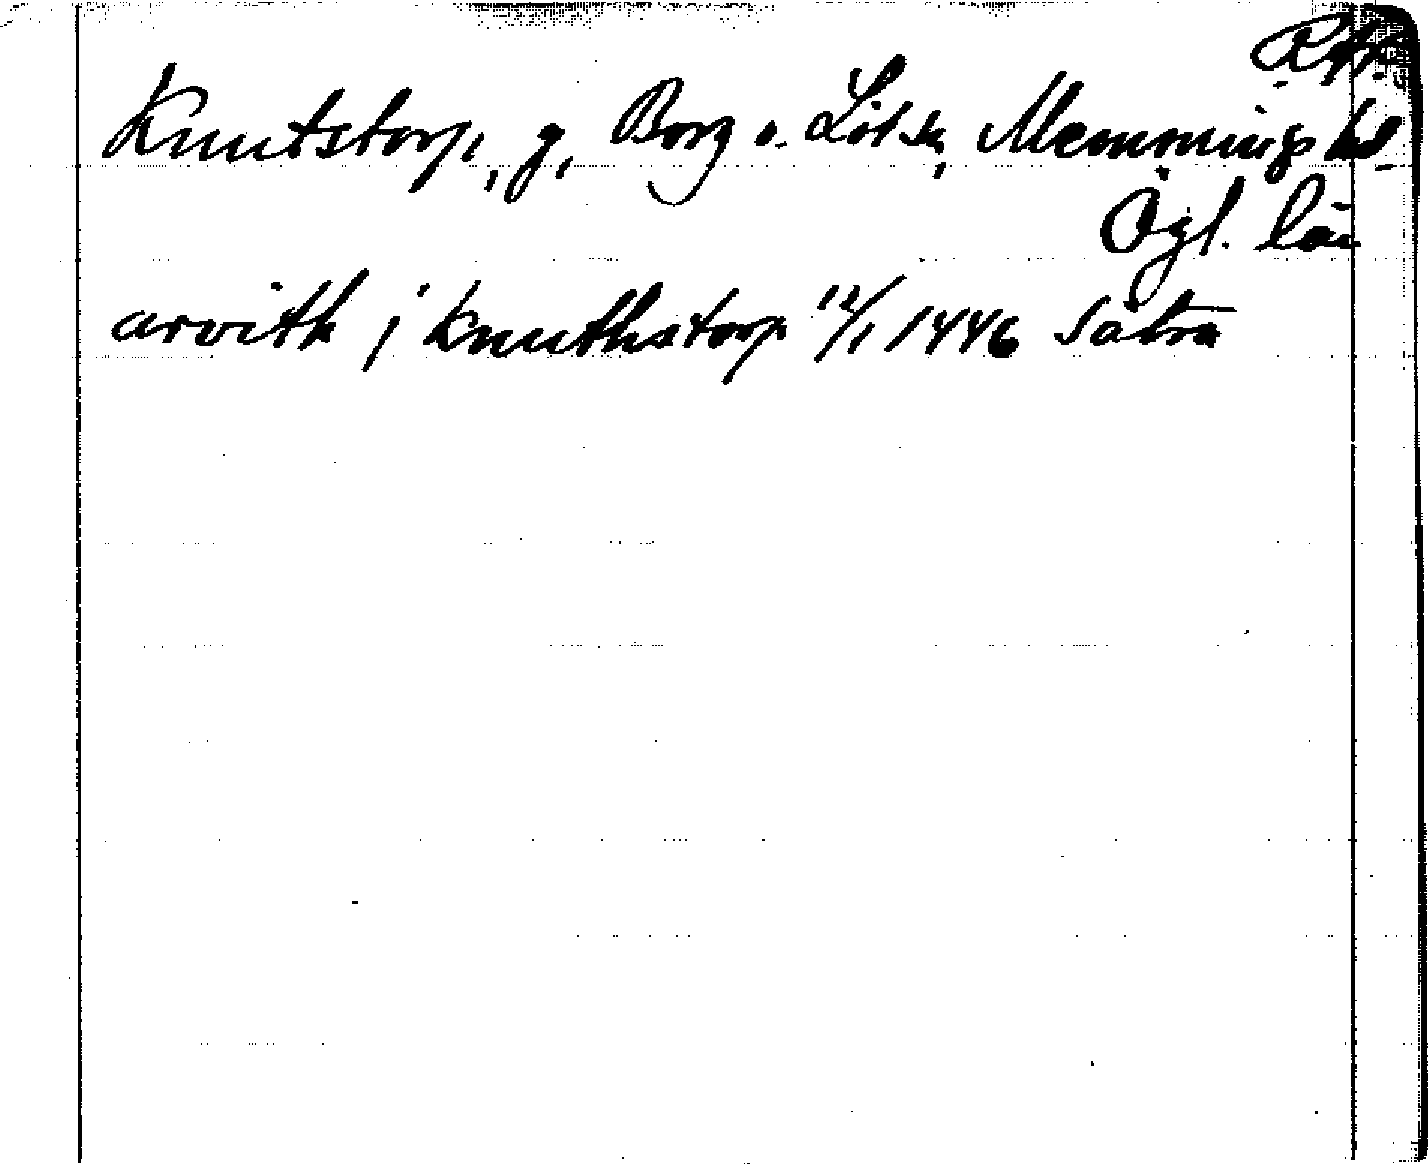 Knutstorp, g, Borg o. Löt sn, Memmings hd
Ögl. län
arvith j knuthstorp 12/1 1446 Sätra